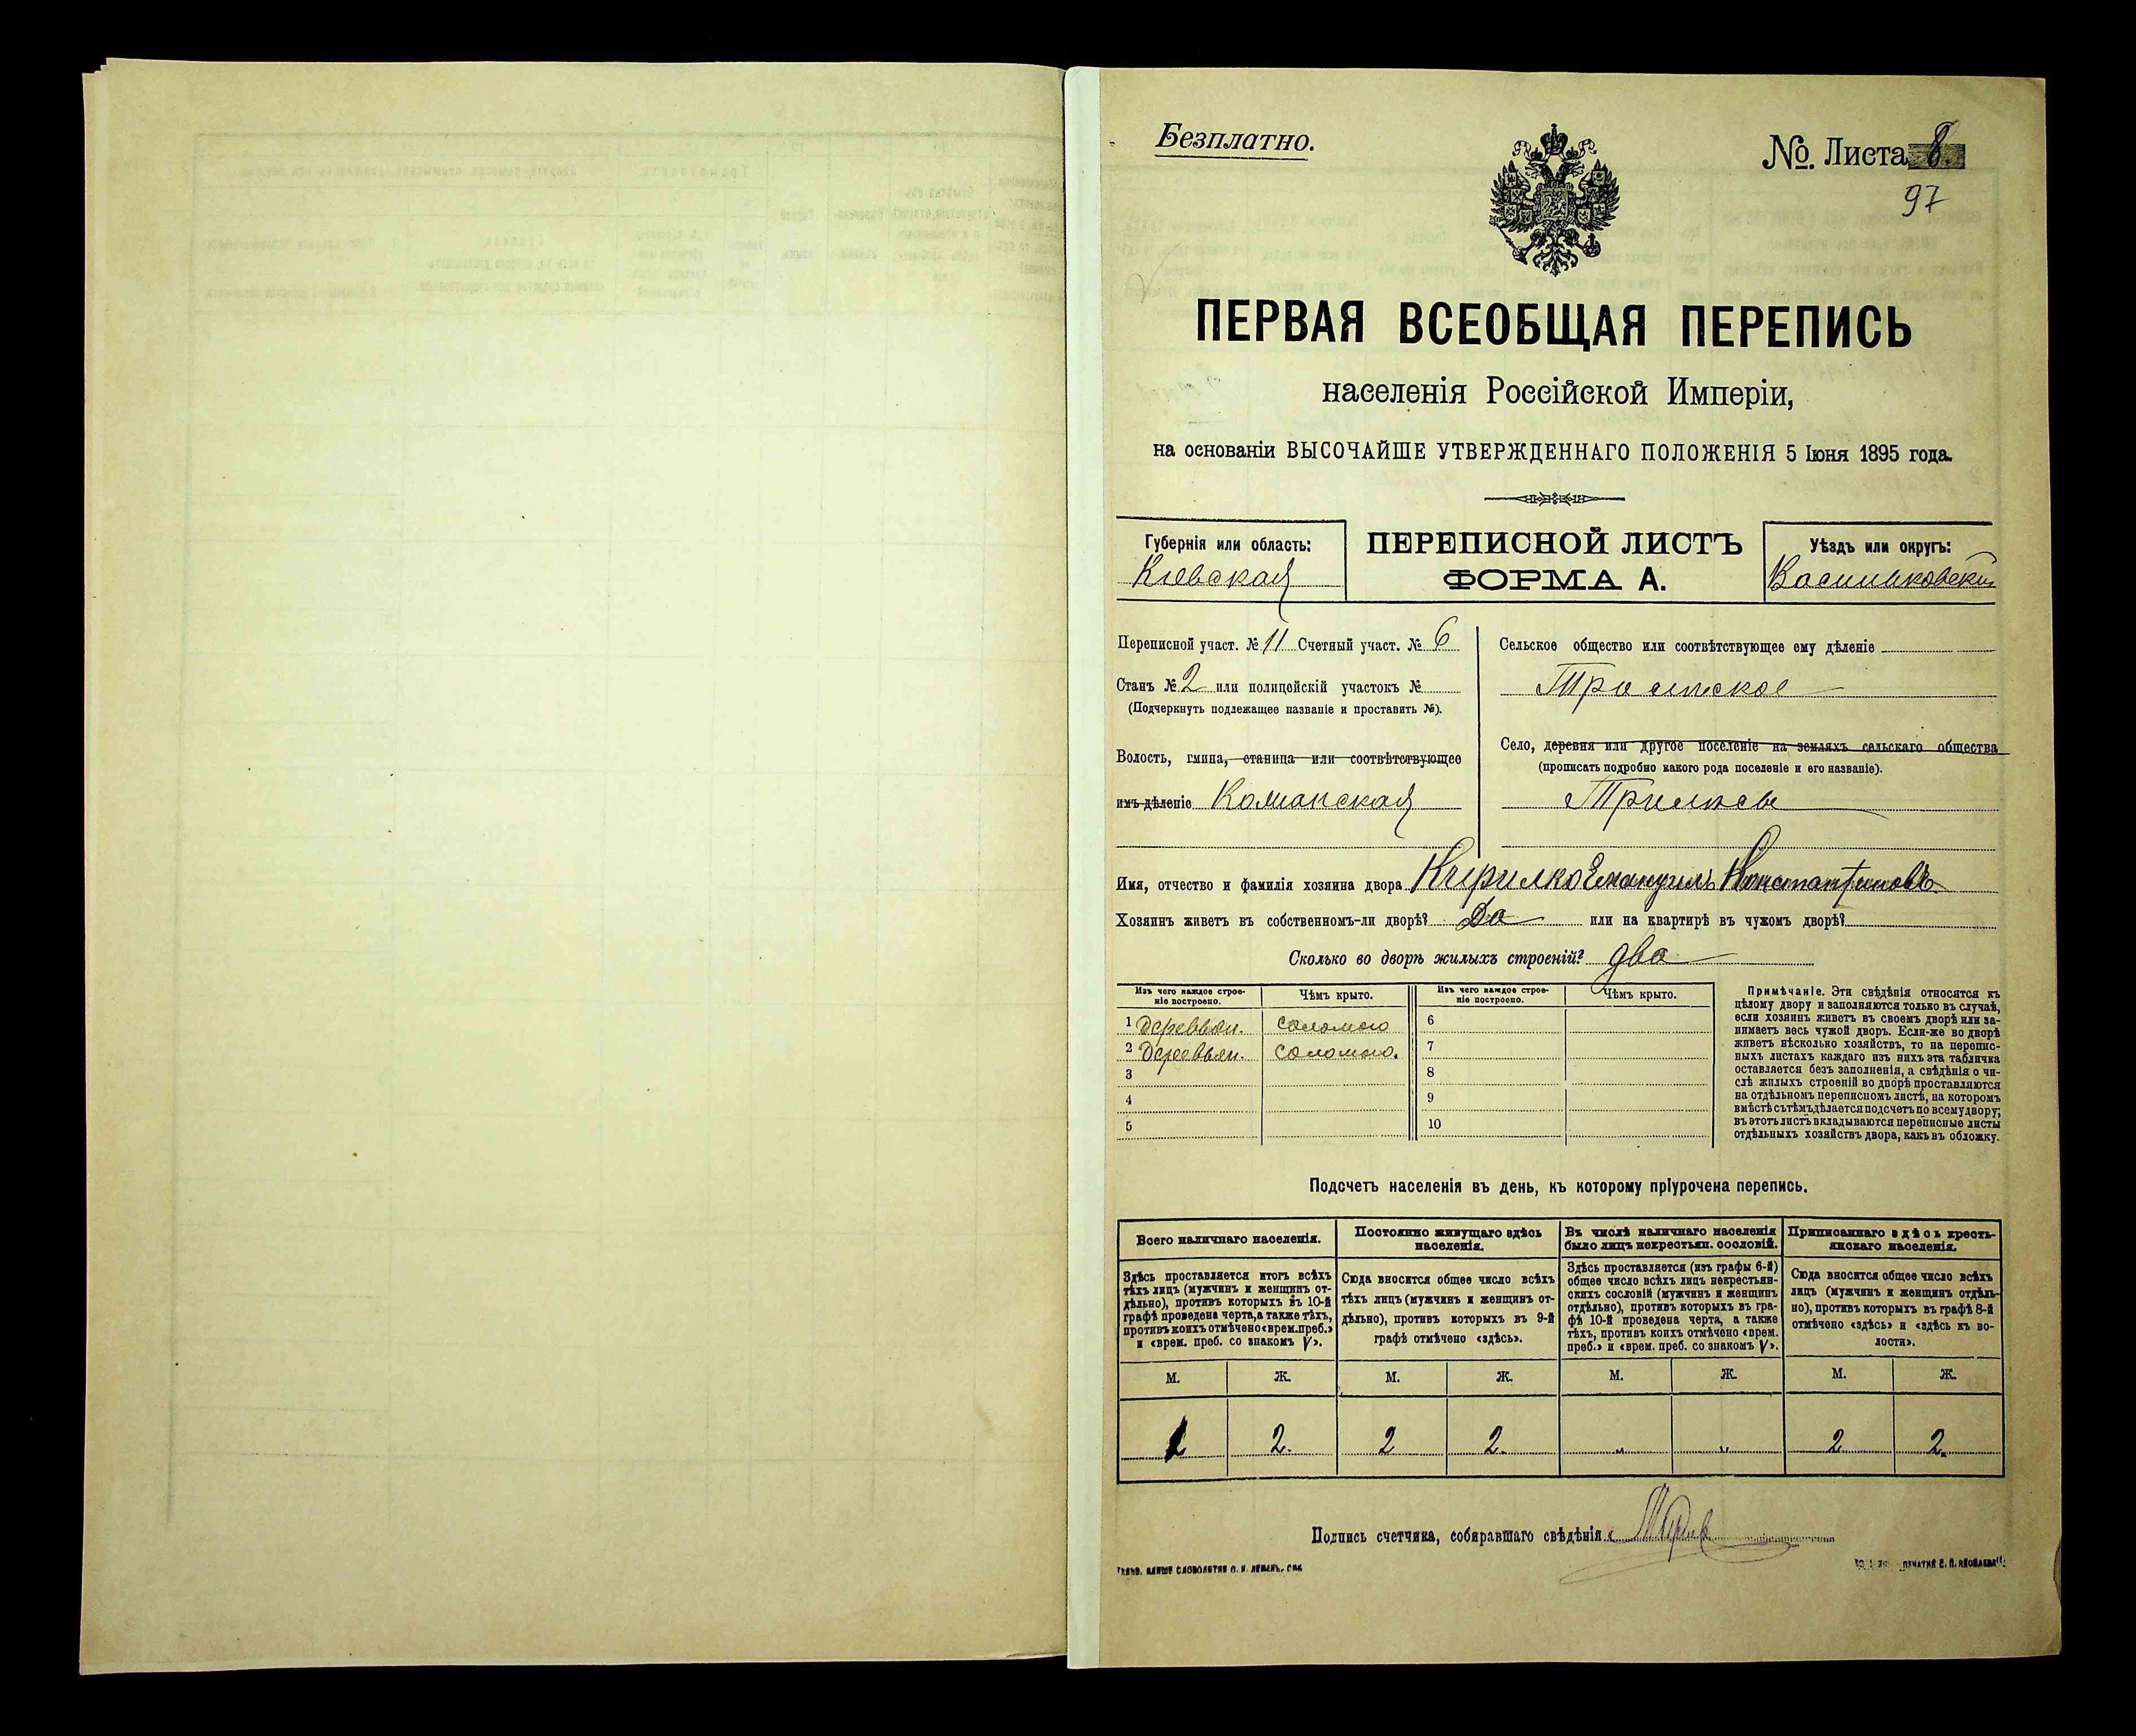 Безплатно.
№ Листа 8.
97
ПЕРВАЯ ВСЕОБЩАЯ ПЕРЕПИСЬ
населенія Россійской Имперіи,
на основаніи ВЫСОЧАЙШЕ УТВЕРЖДЕННАГО ПОЛОЖЕНІЯ 5 Іюня 1895 года.
Губернія или область:
Кіевская
ПЕРЕПИСНОЙ ЛИСТЪ
ФОРМА А.
Уѣздъ или округъ:
Васильковскій
Переписной участ. № 11 Счетный участ. № 6
Станъ № 2 или полицейскій участокъ №
(Подчеркнуть подлежащее названіе и проставить №).
Волость, гмина, станица или соотвѣтствующее
имъ дѣленіе
Сельское общество или соотвѣтствующее ему дѣленіе
Село, деревня или другое поселеніе на земляхъ сельскаго общества
(прописать подробно какого рода поселеніе и его названіе).
Имя, отчество и фамилія хозяина двора Кирилко Емануилъ Константиновъ
Хозяинъ живетъ въ собственномъ-ли дворѣ? Да или на квартирѣ въ чужомъ дворѣ?
Сколько во дворѣ жилыхъ строеній? два
Изъ чего каждое строе-
ніе построено.
Чѣмъ крыто.
Изъ чего каждое строе-
ніе построено.
Чѣмъ крыто.
1 Деревян. соломою 6
2 Деревян. соломою. 7
3 8
4 9
5 10
Примѣчаніе. Эти свѣдѣнія относятся къ
цѣлому двору и заполняются только въ случаѣ,
если хозяинъ живетъ въ своемъ дворѣ или за-
нимаетъ весь чужой дворъ. Если-же во дворѣ
живетъ нѣсколько хозяйствъ, то на перепис-
ныхъ листахъ каждаго изъ нихъ эта табличка
оставляется безъ заполненія, а свѣдѣнія о чи-
слѣ жилыхъ строеній во дворѣ проставляются
на отдѣльномъ переписномъ листѣ, на которомъ
вмѣстѣ съ тѣмъ дѣлается подсчетъ по всему двору;
въ этотъ листъ вкладываются переписные листы
отдѣльныхъ хозяйствъ двора, какъ въ обложку.
Подсчетъ населенія въ день, къ которому пріурочена перепись.
Всего наличнаго населенія.
Здѣсь проставляется итогъ всѣхъ
тѣхъ лицъ (мужчинъ и женщинъ от-
дѣльно), противъ которыхъ въ 10-й
графѣ проведена черта, а также тѣхъ,
противъ коихъ отмѣчено «врем. преб.»
и «врем. преб. со знакомъ V».
Постоянно живущаго здѣсь
населенія.
Сюда вносится общее число всѣхъ
тѣхъ лицъ (мужчинъ и женщинъ от-
дѣльно), противъ которыхъ въ 9-й
графѣ отмѣчено «здѣсь».
Въ числѣ наличнаго населенія
было лицъ некрестьян. сословій.
Здѣсь проставляется (изъ графы 6-й)
общее число всѣхъ лицъ некрестьян-
скихъ сословій (мужчинъ и женщинъ
отдѣльно), противъ которыхъ въ гра-
фѣ 10-й проведена черта, а также
тѣхъ, противъ коихъ отмѣчено «врем.
преб.» и «врем. преб. со знакомъ V».
Приписаннаго здѣсь кресть-
янскаго населенія.
Сюда вносится общее число всѣхъ
лицъ (мужчинъ и женщинъ отдѣль-
но), противъ которыхъ въ графѣ 8-й
отмѣчено «здѣсь» и «здѣсь къ во-
лости».
М. Ж. М. Ж. М. Ж. М. Ж.
2. 2 2. " " 2 2.
Подпись счетчика, собиравшаго свѣдѣнія